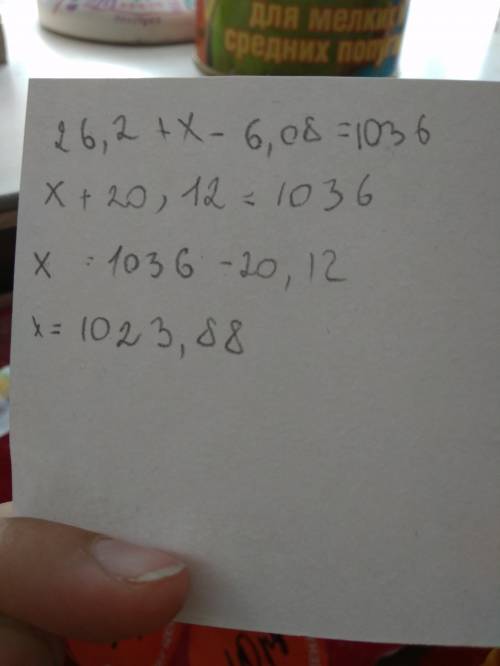 для мелких
средних попуг
26,2 + x - 6,08 = 1036
x + 20,12 = 1036
x = 1036 - 20,12
x = 1023,88